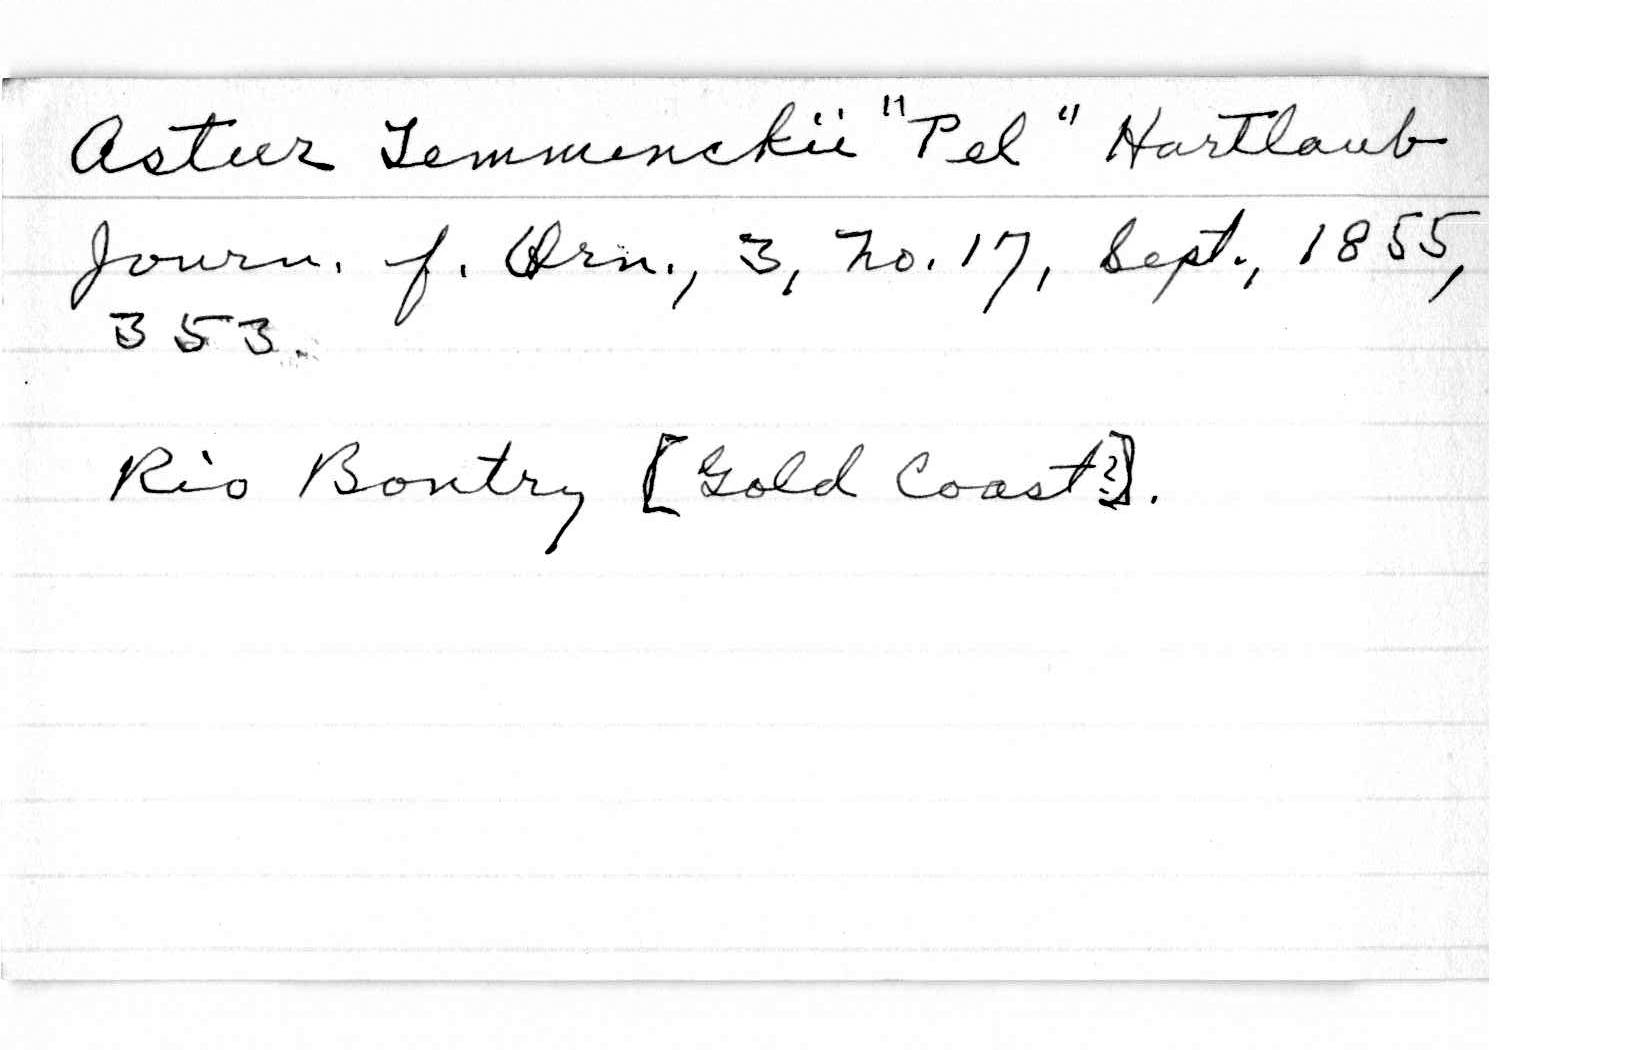 Astur Temmenckii "Pel" Hartlaub
Journ. f. Orn., 3, No. 17, Sept., 1855,
353.
Rio Boutry [Gold Coast?].